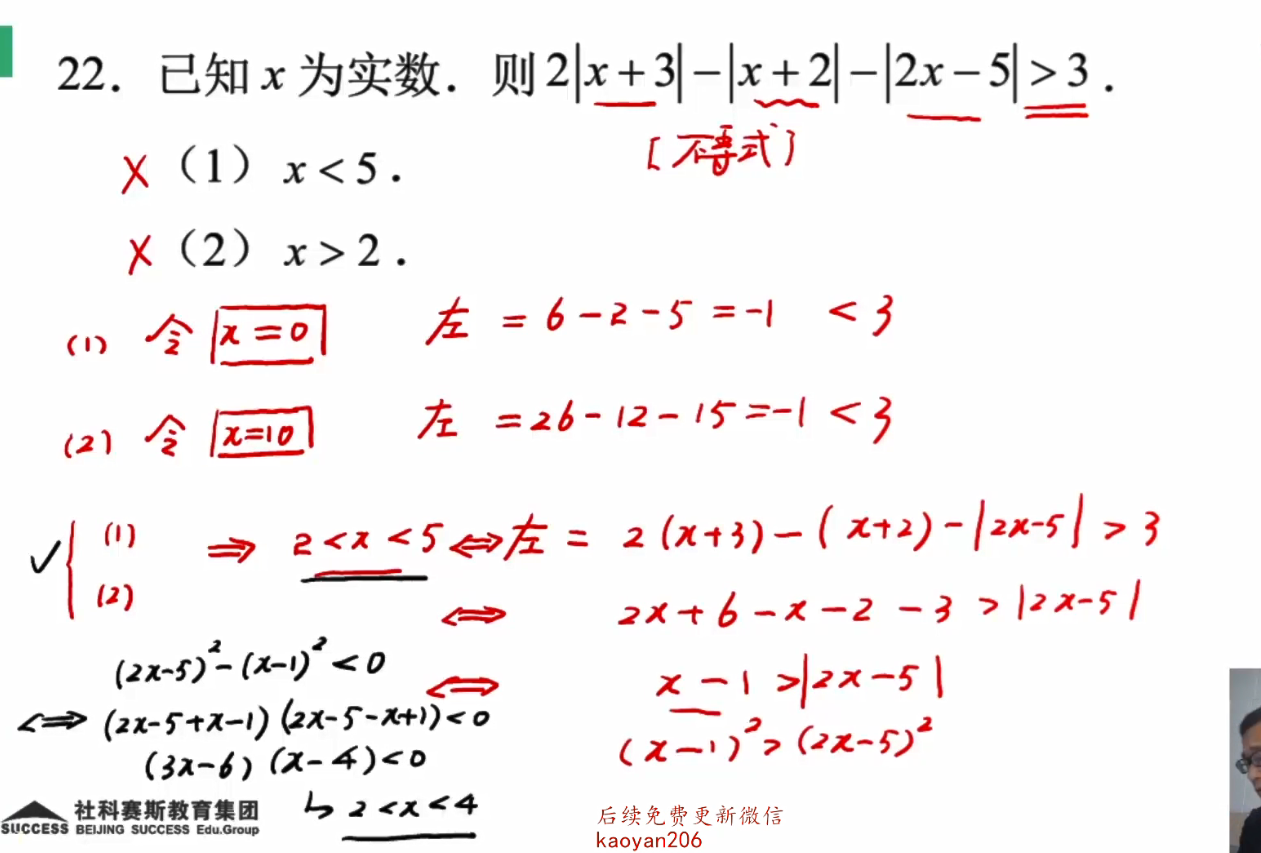 22. 已知 x 为实数. 则 2|x+3|-|x+2|-|2x-5|>3.
[不等式]
X (1) x<5.
X (2) x>2.
(1) 令 x=0 左 = 6-2-5 = -1 <3
(2) 令 x=10 左 =26-12-15=-1 <3
✓ { (1) (2) ⇒ 2<x<5 ⇔ 左 = 2(x+3)-(x+2)-|2x-5| >3
⇔ 2x+6-x-2-3 > |2x-5|
(2x-5)²-(x-1)²<0 ⇔ x-1 >|2x-5|
⇔ (2x-5+x-1)(2x-5-x+1)<0 (x-1)²>(2x-5)²
(3x-6)(x-4)<0
↳ 2<x<4
社科赛斯教育集团
SUCCESS BEIJING SUCCESS Edu.Group
后续免费更新微信
kaoyan206